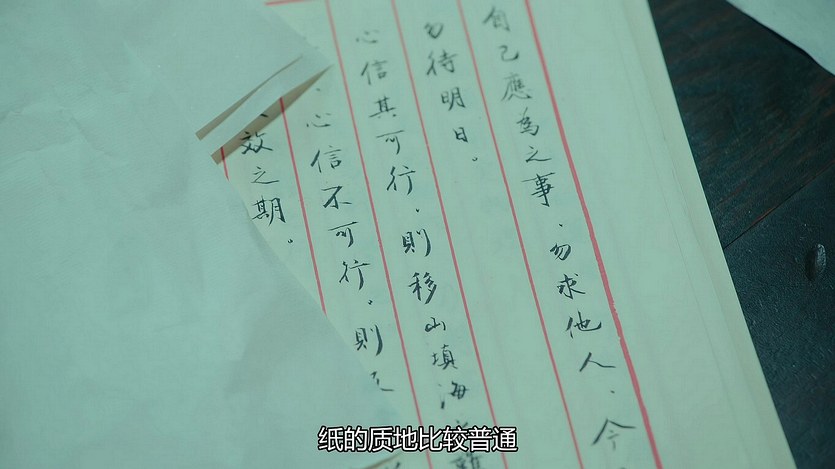 自己應為之事、勿求他人、今
勿待明日。
心信其可行，則移山填海之難
、心信不可行，則反
效之期。
纸的质地比较普通